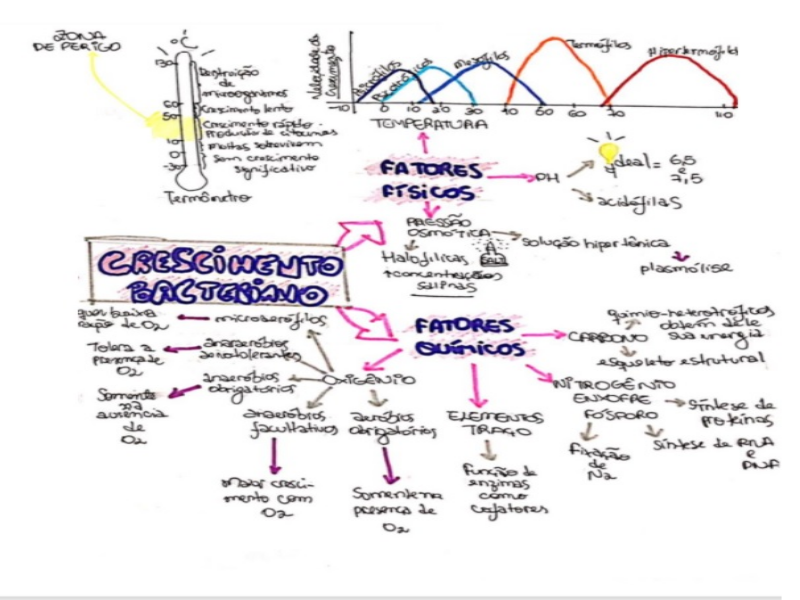 ZONA
DE PERIGO
°C
130
60
50
10
0
-30
Destruição
de
microorganismos
Crescimento lento
Crescimento rápido
Produção de toxinas
Muitas sobrevivem
Sem crescimento
significativo
Termômetro
Velocidade do
Crescimento
Psicrófilos
Psicrotróficos
Mesófilos
Termófilos
Hipertermófilos
-10 0 10 20 30 40 50 60 70 110
TEMPERATURA
FATORES
FÍSICOS
PH
ideal = 6,5
e
7,5
acidófilas
PRESSÃO
OSMÓTICA
SALT
solução hipertônica
plasmólise
Halofílicas
+concentrações
salinas
CRESCIMENTO
BACTERIANO
FATORES
QUÍMICOS
CARBONO
quimio-heterotróficos
obtem dele
sua energia
esqueleto estrutural
NITROGÊNIO
ENXOFRE
FÓSFORO
Síntese de
proteínas
Síntese de RNA
e
DNA
Fixação
de
N2
ELEMENTOS
TRAÇO
Função de
enzimas
como
cofatores
OXIGÊNIO
microaerófilos
quer baixa
de O2
anaeróbios
aerotolerantes
Tolera a
presença de
O2
anaeróbios
obrigatórios
Somente
na
ausência
de
O2
anaeróbios
facultativos
Maior cresci-
mento com
O2
aeróbios
obrigatórios
Somente na
presença de
O2